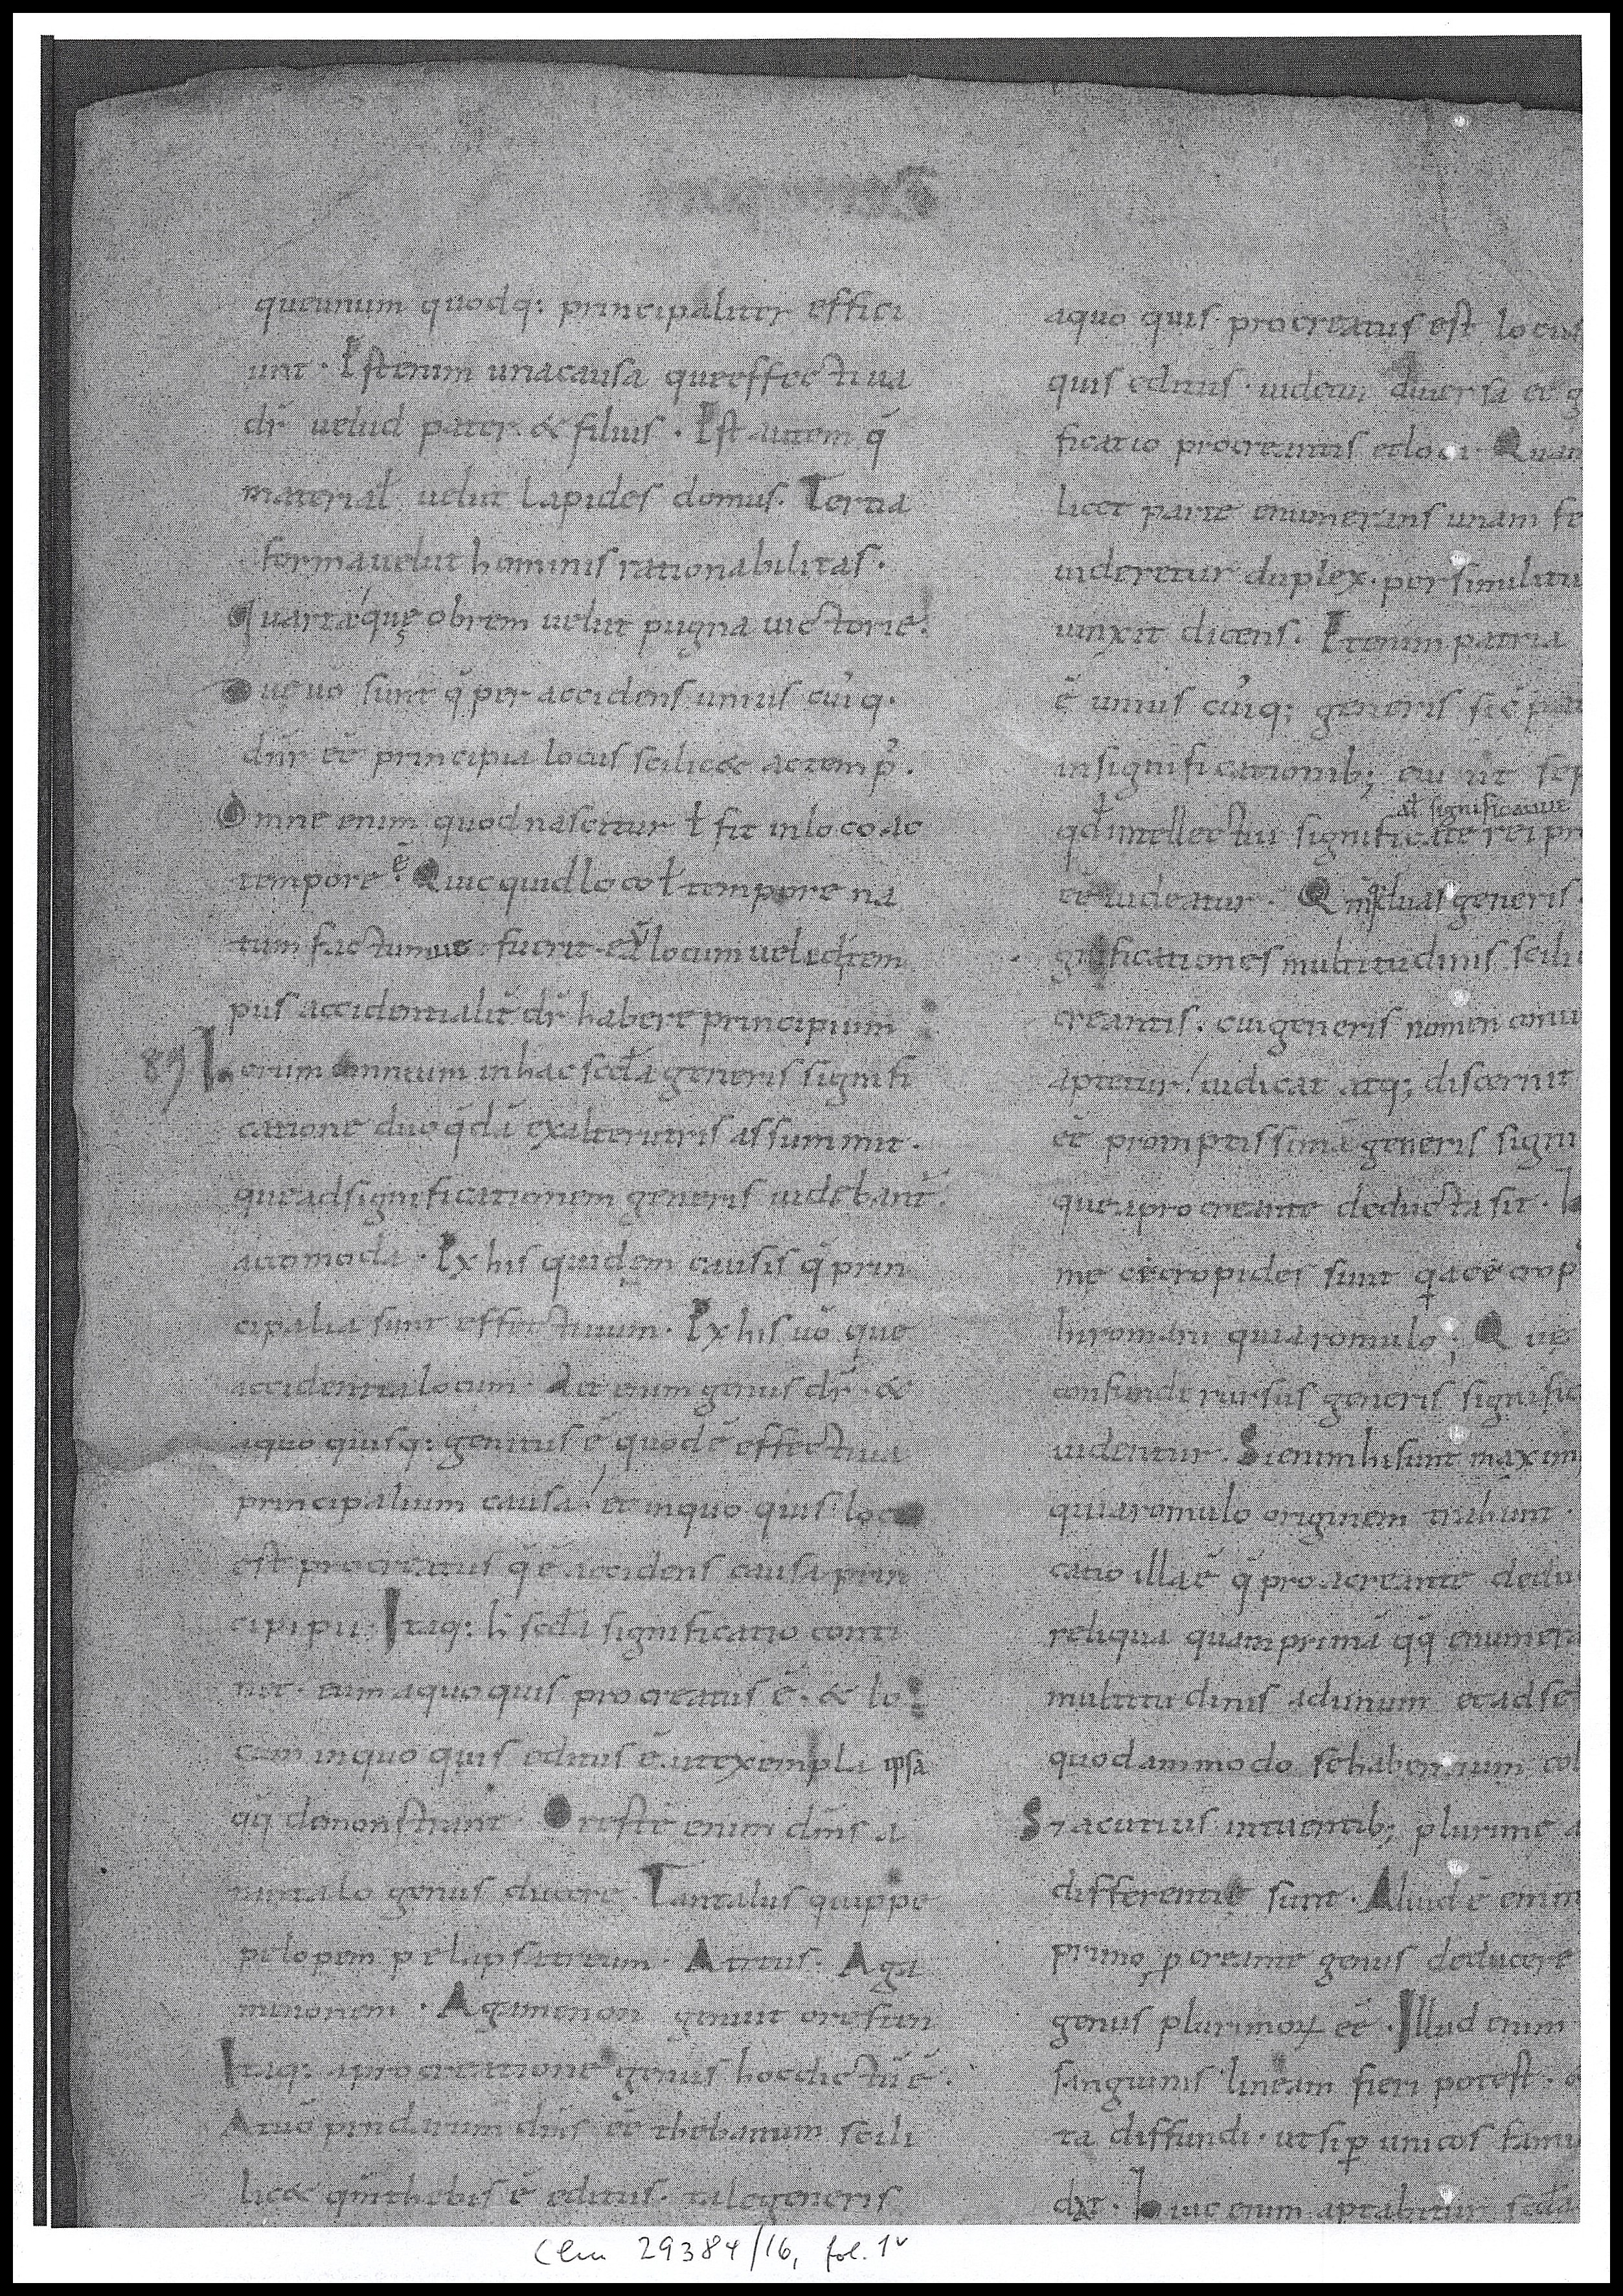 queunum quodq: principaliter effici
unt · Est enim una causa que effectiua
dr̄ uelud pater & filius · Est autem q̄
material̄ uelut lapides domus. Tertia
forma uelut hominis rationabilitas.
Quarta quę ob rem uelut pugna uictorie.
Duę uo sunt q̄ per accidens unius cuiq.
dn̄r ee principia locus scilic& ac temp.
Omne enim quod nascitur ł fit in loco ac
tempore ē. Quicquid loco ł tempore na
tum factumue fuerit · eū locum uel id tem
pus accidentalit dr̄ habere principium
89 horum omnium in hac scd̄a generis signifi
catione duo q̄dā ex alterutris assummit.
que ad significationem generis uidebant̄.
accomoda · Ex his quidem causis q̄ prin
cipalia sunt effectiuum · Ex his uō que
accidentia locum. Ait enim genus dr̄ · &
a quo quisq: genitus ē quod ē effectiua
principalium causa et in quo quis loco
est procreatus q̄ ē accidens causa prin
cipii · Itaq: h̄ scd̄a significatio conti
net · eum a quo quis procreatus ē · & lo
cum in quo quis editus ē. ut exempla ipsa
qq̄ demonstrant · Oreste enim dm̄s a
tantalo genus ducere · Tantalus quippe
pelopem pelups atreum · Atreus · Aga
minonem · Agamenon genuit oresten
Itaq: a procreatione genus hoc dictū ē.
At uō pindarum dm̄s eē thebanum scili
lic& qm̄ thebis ē editus · tale generis
a quo quis procreatus est locus
quis editus · uidetur diuersa ee g
ficatio procreantis et loci · Quan
licet parte enumerans unam se
uideretur duplex · per similitu
uinxit dicens. Etenim patria
ē unius cuiq; generis sic
in significationib; cui ut sep
ał significatiue
qd̄ intellectui significate rei pr
ee uideatur · Qm̄ duas generis
gnificationes multitudinis scili
creantis. cui generis nomen conu
aptetur iudicat atq; discernit
eē promptissimā generis signi
que a procreante deducta sit · h
me cecropides sunt q a cecrop
hi romani quia romulo; Quę
confundi rursus generis signific
uidentur · Si enim hi sunt maxim
qui a romulo originem trahunt ·
catio illa ē q̄ pro acreante dedu
reliqua quam primā qq̄ enumera
multitudinis ad unum et ad se
quodammodo se habentium col
Sz acutius intuentib; plurime
differentie sunt · Aliud ē enim
primo pcreante genus deducere
genus plurimoꝝ eē · Illud enim
sanguinis lineam fieri potest ·
ta diffundi · ut si p unicos fami
dx̄t · huic enim aptabitur scd̄a
Clm 29384/16, fol. 1v